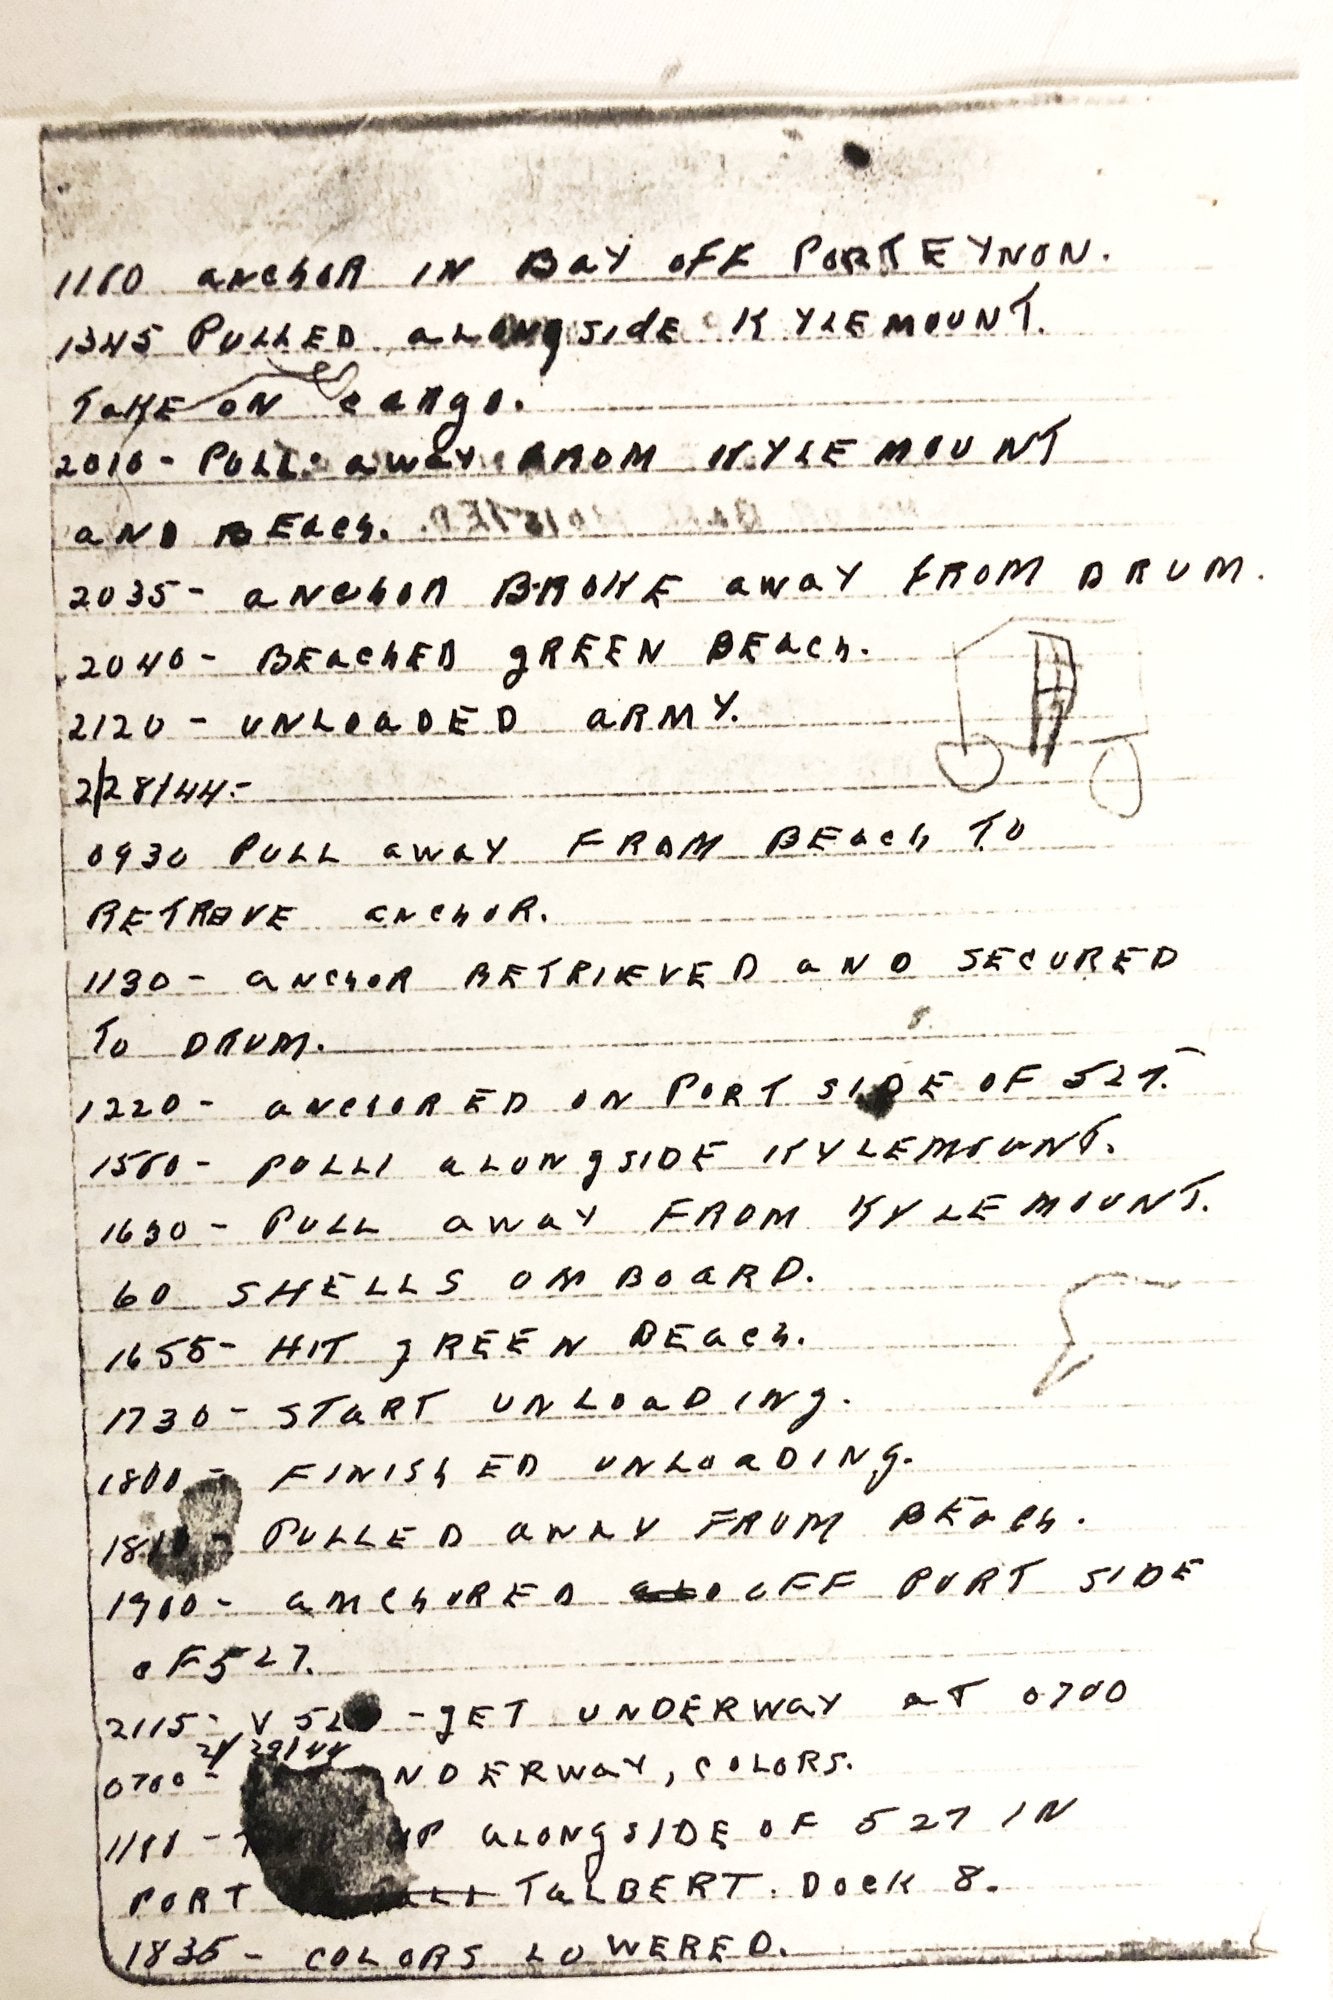 1100 anchOR IN Bay off PORT EYNON.
1345 PULLED alongside KYLEMOUNT.
TaKE ON cargo.
2010- PULL away FROM KYLEMOUNT
aND BEach.
2035- anchOR BROKE away FROM DRUM.
2040- BEachED gREEN BEach.
2120- UNLOaDED aRMY.
2/28/44-
0930 PULL away FROM BEach TO
RETREVE anchOR.
1130- anchOR RETRIEVED aND SECURED
To DRUM.
1220- anchORED ON PORT SIDE OF 527.
1500- PULLI aLONgSIDE KYLEMOUNT.
1630- PULL away FROM KYLEMOUNT.
60 SHELLS ON BOaRD.
1655- HIT gREEN BEach.
1730- STaRT UNLOaDINg.
1800- FINIShED UNLOaDINg.
1810- PULLED away FROM BEach.
1900- anchORED OFF PORT SIDE
oF 527.
2115- V 52 -gET UNDERWaY aT 0700
2/29/44
0700- NDERWaY, COLORS.
UP aLONgSIDE OF 527 IN
PORT TaLBERT. DOcK 8.
1835- COLORS LOWERED.